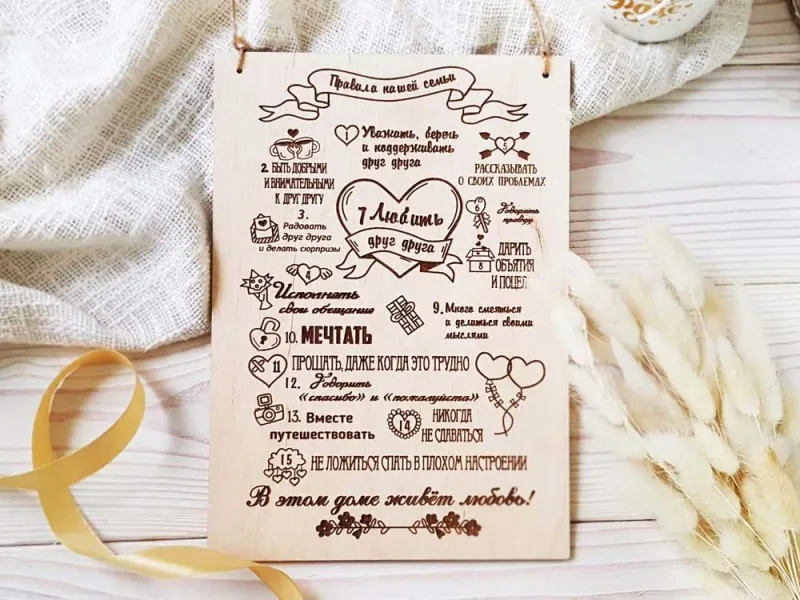 Правила нашей семьи
1 Уважать, беречь
и поддерживать
друг друга
2. БЫТЬ ДОБРЫМИ
И ВНИМАТЕЛЬНЫМИ
К ДРУГ ДРУГУ
3.
Радовать
друг друга
и делать сюрпризы
4
Исполнять
свои обещания
5
РАССКАЗЫВАТЬ
О СВОИХ ПРОБЛЕМАХ
6
Говорить
правду
7 Любить
друг друга
8
ДАРИТЬ
ОБЪЯТИЯ
И ПОЦЕЛ
9. Много смеяться
и делиться своими
мыслями
10. МЕЧТАТЬ
11 ПРОЩАТЬ, ДАЖЕ КОГДА ЭТО ТРУДНО
12. Говорить
«спасибо» и «пожалуйста»
13. Вместе
путешествовать
14 НИКОГДА
НЕ СДАВАТЬСЯ
15 НЕ ЛОЖИТЬСЯ СПАТЬ В ПЛОХОМ НАСТРОЕНИИ
В этом доме живёт любовь!